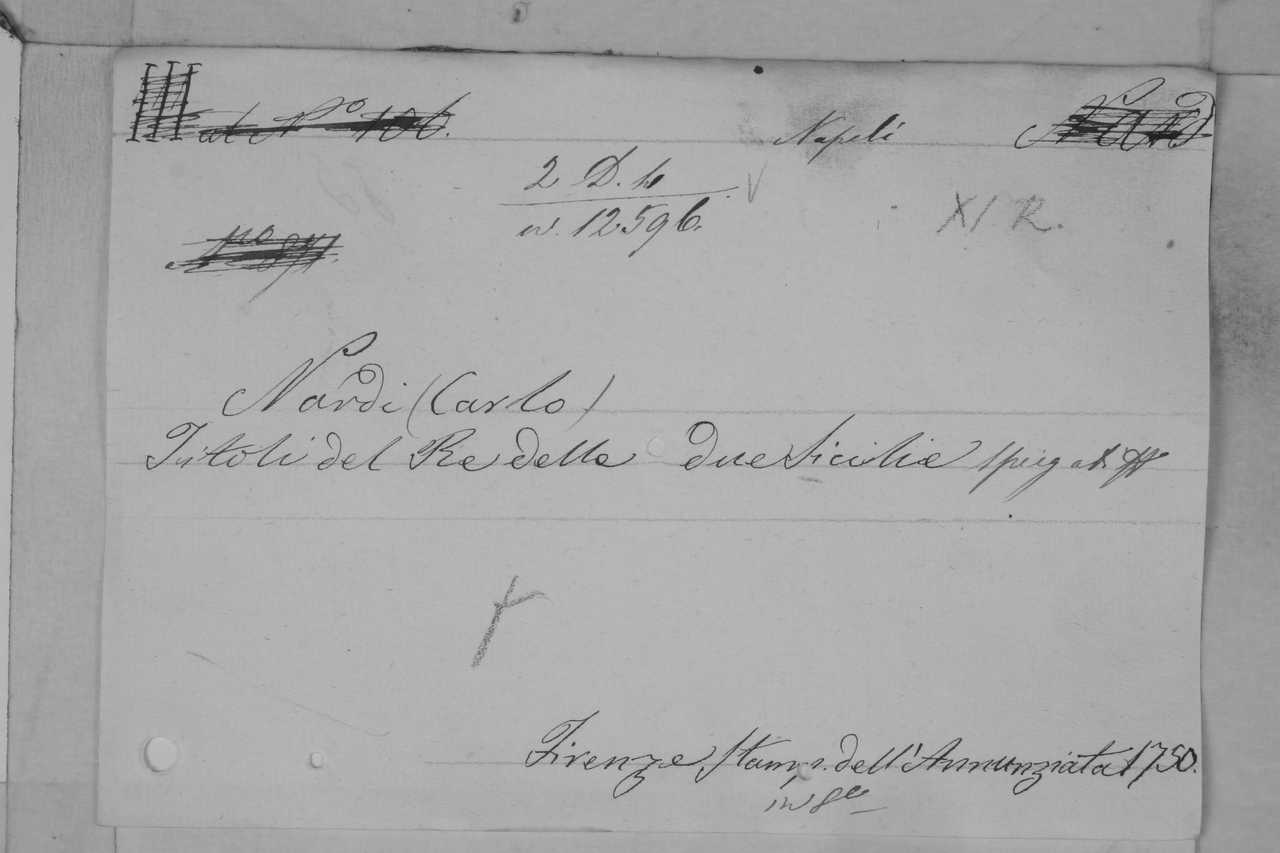 III al Nº 106.
Napoli
2 D. h
w. 12596.
XI R.
Nardi (Carlo)
Titoli del Re delle due Sicilie spiegati
Firenze Stamp. dell'Annunziata 1750.
in 8º